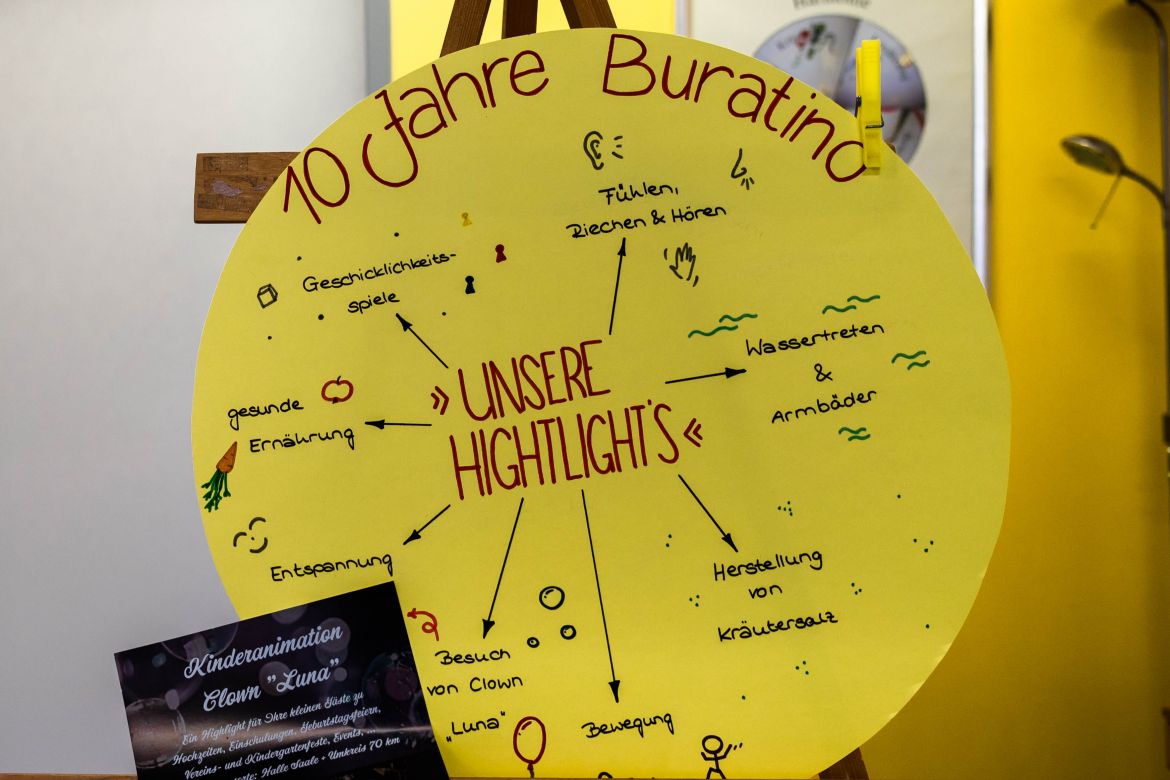 10 Jahre Buratino
Fühlen,
Riechen & Hören
Geschicklichkeits-
spiele
Wassertreten
&
Armbäder
» UNSERE
HIGHTLIGHT'S «
gesunde
Ernährung
Entspannung
Herstellung
von
Kräutersalz
Besuch
von Clown
"Luna"
Bewegung
Kinderanimation
Clown "Luna"
Ein Highlight für Ihre kleinen Gäste zu
Hochzeiten, Einschulungen, Geburtstagsfeiern,
Vereins- und Kindergartenfeste, Events, ...
Halle Saale + Umkreis 70 km